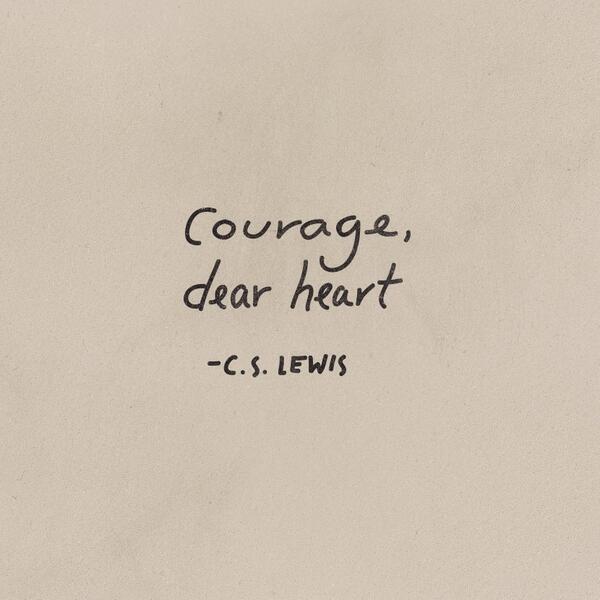 Courage,
dear heart
-C.S. LEWIS